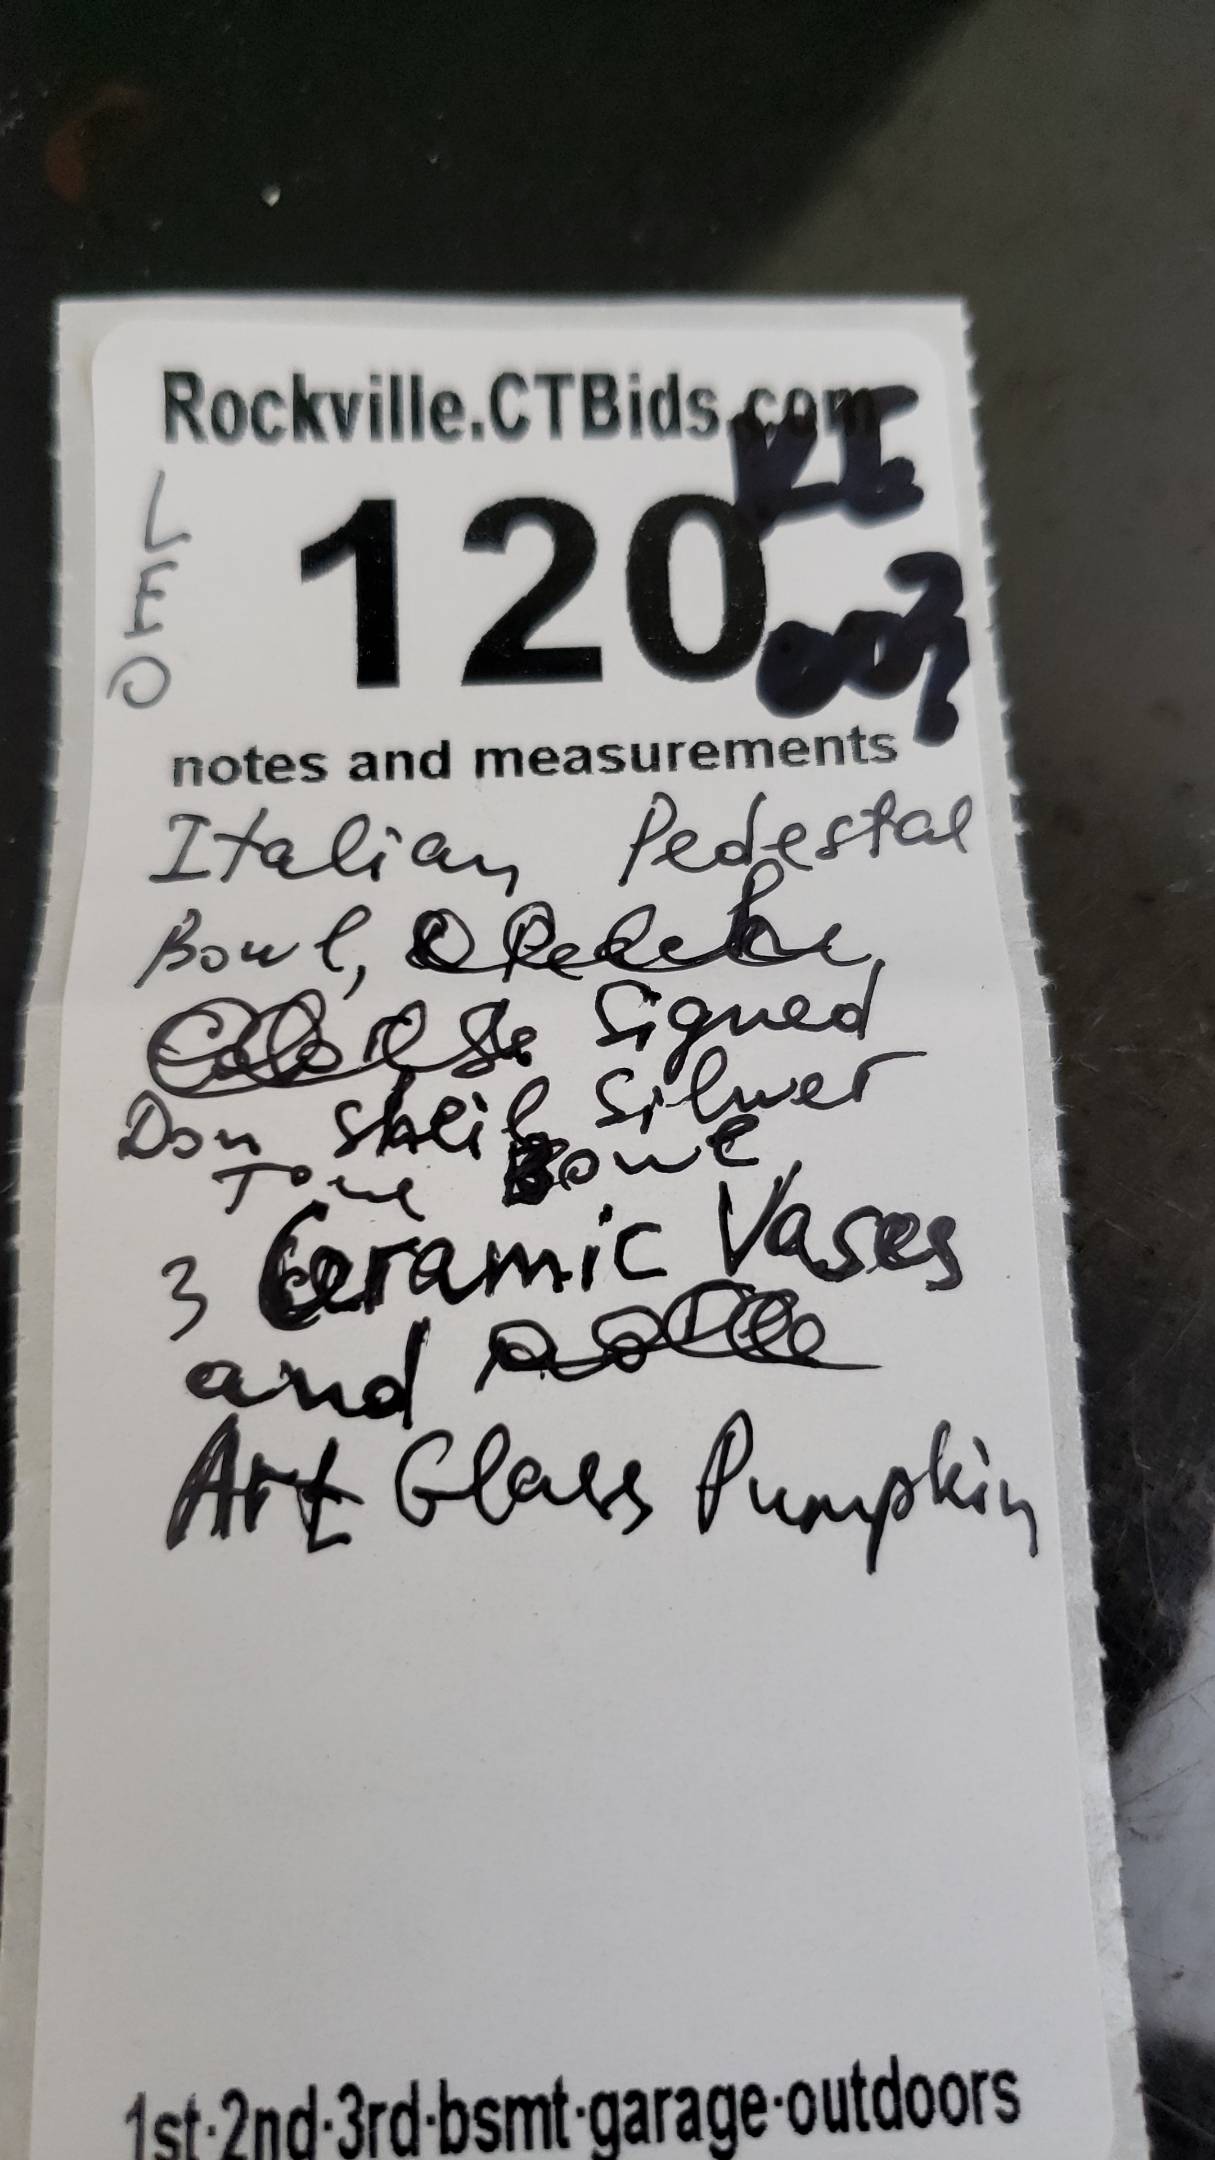 Rockville.CTBids.com
LEO
120
notes and measurements
Italian Pedestal
Bowl,
Signed
Don Sheil Silver
Tone Bowl,
3 Ceramic Vases
and
Art Glass Pumpkin
1st·2nd·3rd·bsmt·garage·outdoors